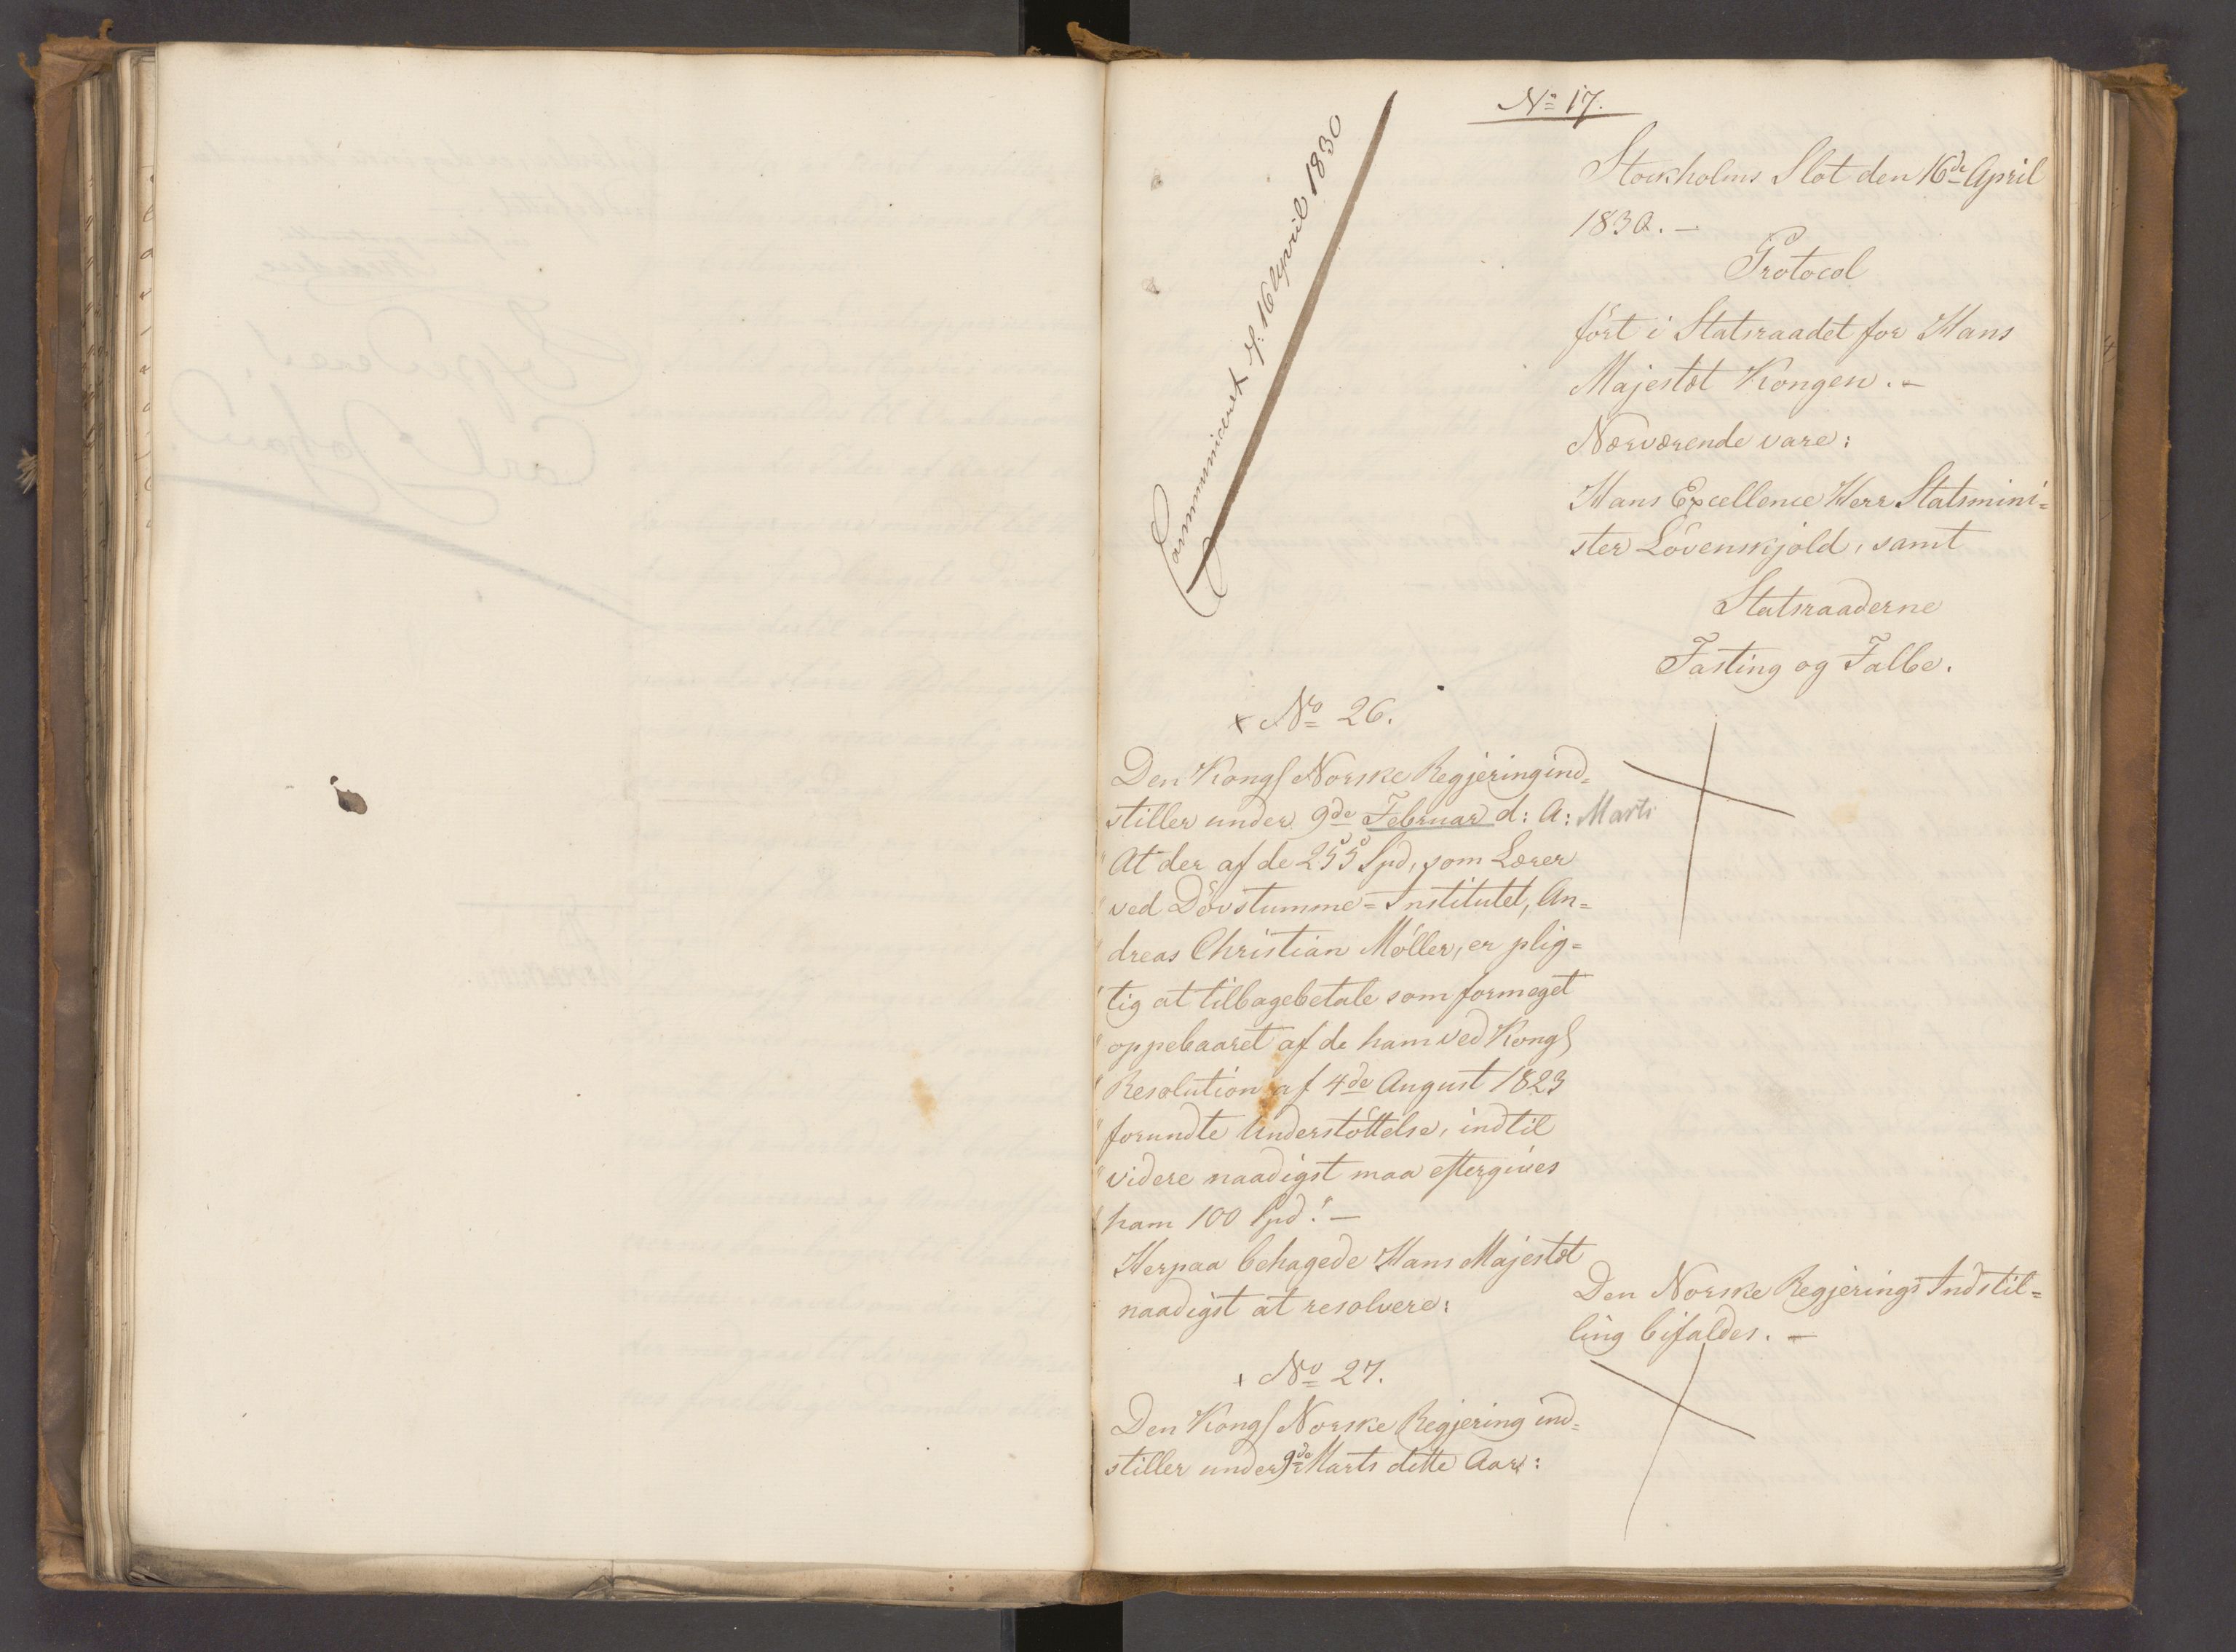 No 17.
Communiceret p: 16 April 1830
Stockholms Slot den 16de April
1830. -
Protocol
fört i Statsraadet for Hans
Majestæt Kongen. -
Nærværende vare:
Hans Excellence Herr Statsmini=
ster Lövenskjold, samt
Statsraaderne
Fasting og Falbe.
x No 26.
Den Kongl Norske Regjering ind=
stiller under 9de Februar d: A: Marts
"At der af de 255 Spd, som Lærer
"ved Dövstumme=Institutet, An=
"dreas Christian Möller, er plig=
"tig at tilbagebetale som formeget
"oppebaaret af de ham ved Kongl
"Resolution af 4de August 1823
"forundte Understöttelse, indtil
"videre naadigst maa eftergives
"ham 100 Spd." -
Herpaa behagede Hans Majestæt
naadigst at resolvere:
Den Norske Regjerings Indstil=
ling bifaldes. -
x No 27.
Den Kongl Norske Regjering ind=
stiller under 9de Marts dette Aar: